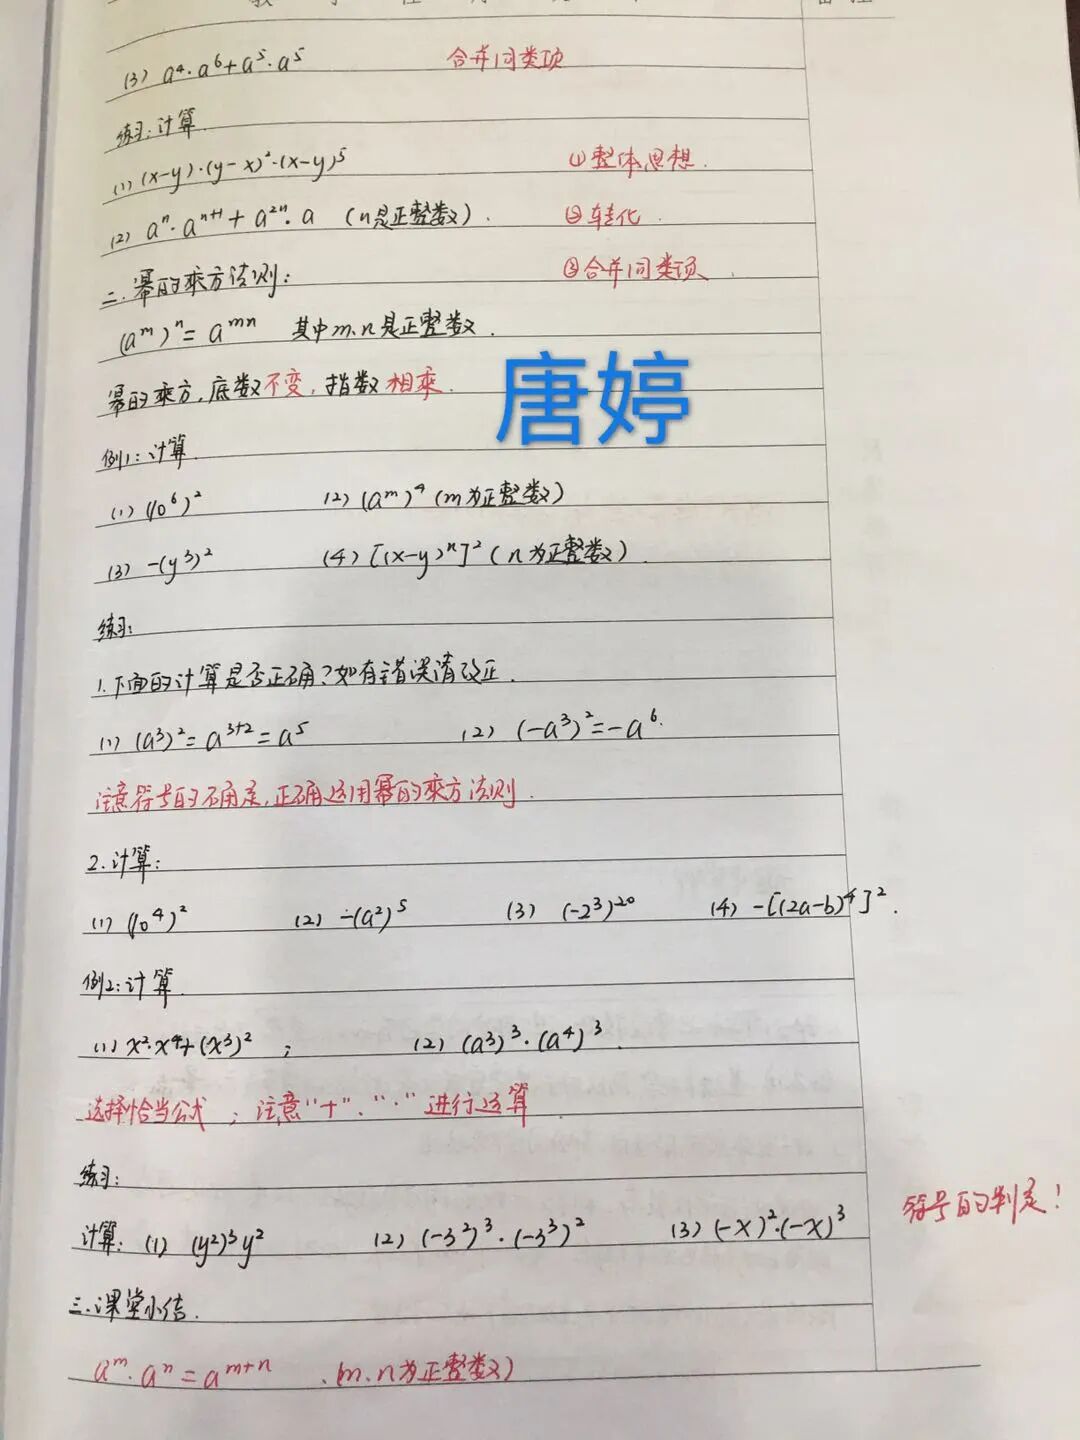 (3) a⁴·a⁶+a⁵·a⁵ 合并同类项
练习:计算
(1) (x-y)·(y-x)²·(x-y)⁵ ①整体思想.
(2) aⁿ·aⁿ⁺¹+a²ⁿ·a (n是正整数). ②转化.
二.幂的乘方法则: ③合并同类项.
(aᵐ)ⁿ=aᵐⁿ 其中m.n是正整数.
幂的乘方,底数不变,指数相乘.
唐婷
例1:计算.
(1) (10⁶)² (2) (aᵐ)⁴ (m为正整数)
(3) -(y³)² (4) [(x-y)ⁿ]² (n为正整数).
练习:
1.下面的计算是否正确?如有错误请改正.
(1) (a³)²=a³⁺²=a⁵ (2) (-a³)²=-a⁶.
注意符号的确定,正确运用幂的乘方法则.
2.计算:
(1) (10⁴)² (2) -(a²)⁵ (3) (-2³)²⁰ (4) -[(2a-b)⁴]².
例2:计算.
(1) x²·x⁴+(x³)² ; (2) (a³)³·(a⁴)³.
选择恰当公式;注意"+"."·"进行运算.
练习:
符号的判定!
计算: (1) (y²)³y² (2) (-3²)³·(-3³)² (3) (-x)²·(-x)³
三.课堂小结.
aᵐ·aⁿ=aᵐ⁺ⁿ .(m.n为正整数)